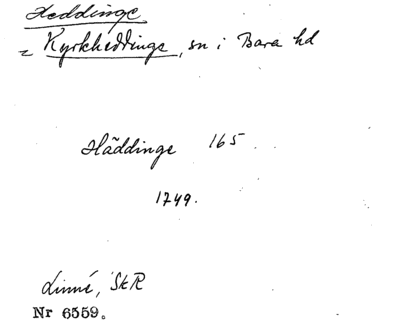 Heddinge
= Kyrkheddinge, sn i Bara hd
Häddinge 165.
1749.
Linné, SkR
Nr 6559.